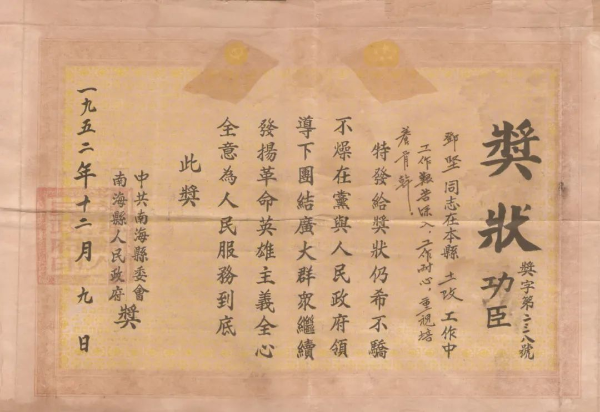 獎狀
功臣
獎字第二三八號
鄧堅同志在本縣土改工作中
工作艱苦深入、工作耐心、重視培
養骨幹，
特發給獎狀仍希不驕
不燥在黨與人民政府領
導下團結廣大群眾繼續
發揚革命英雄主義全心
全意為人民服務到底
此獎
中共南海縣委會
南海縣人民政府
獎
一九五二年十二月九日